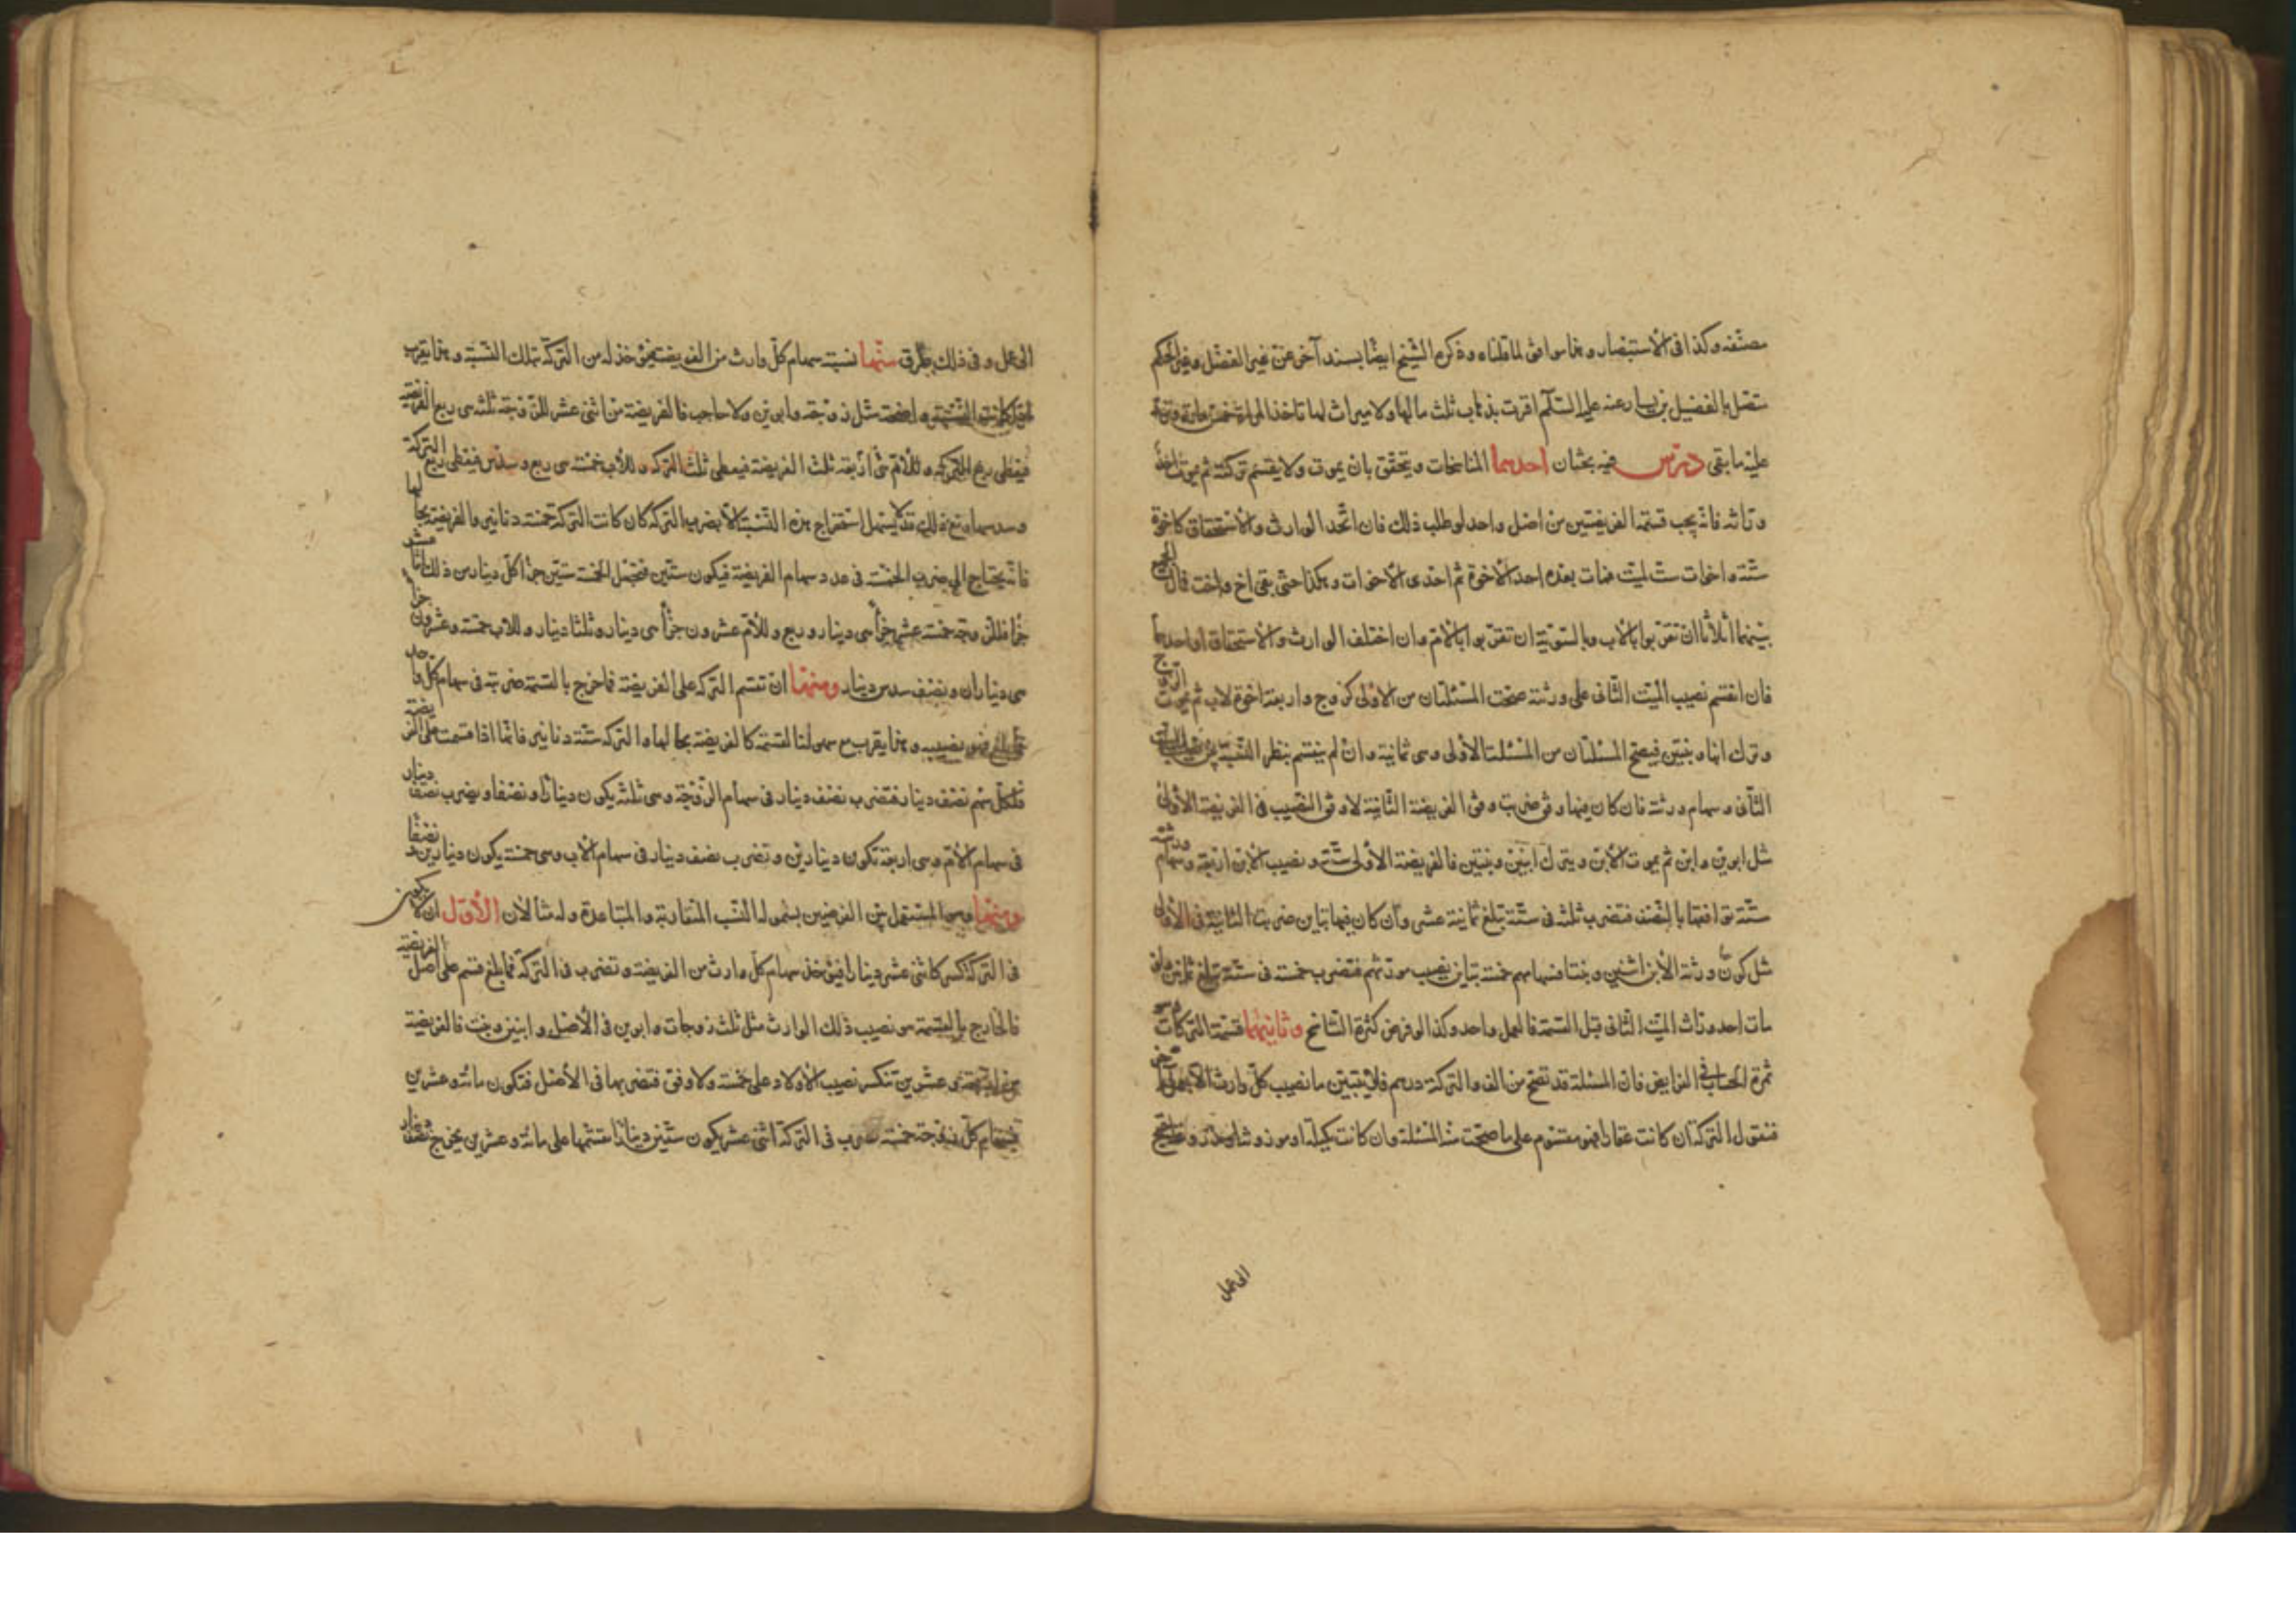 مصنفه وكذا فى الاستبصار وهما موافق لما قلناه وذكره الشيخ ايضا بسند آخر عن غير الفضل وغير الحكم
متصل بالفضيل بن يسار عنه عليه السلام اقرت بذهاب ثلث مالها ولا ميراث لها تأخذ المراة
عليه ما بقى درس فيه بحثان احدهما المناسخات ويتحقق بان يموت ولا يقسم تركته ثم يموت احد
وراثه فانه يجب قسمة الفريضتين من اصل واحد لو طلب ذلك فان اتحد الوارث والاستحقاق كاخوة
ستة واخوات ست لميت فمات بعده احد الاخوة ثم احدى الاخوات وهكذا حتى بقى اخ واخت فمال الجميع
بينهما اثلاثا ان تقربوا بالاب وبالسوية ان تقربوا بالام وان اختلف الوارث والاستحقاق او احدهما
فان انقسم نصيب الميت الثانى على ورثته صحت المسئلتان من الاولى كزوج واربعة اخوة لاب ثم يموت الزوج
وترك ابنا وبنتين فيصح المسئلتان من المسئلة الاولى وهى ثمانية وان لم ينقسم ينظر النسبة بين نصيب الميت
الثانى وسهام ورثته فان كان فيهما وفق ضربت وفق الفريضة الثانية لا وفق النصيب فى الفريضة الاولى
مثل ابوين وابن ثم يموت الابن ويترك ابنين وبنتين فالفريضة الاولى ستة ونصيب الابن اربعة وسهام ورثته
ستة توافقها بالنصف فتضرب ثلثة فى ستة تبلغ ثمانية عشر وان كان فيهما تباين ضربت الثانية فى الاولى
مثل كون ورثة الابن اثنين وبنتا فسهامهم خمسة تباين نصيب مورثهم فتضرب خمسة فى ستة تبلغ ثلثين ولو
مات احد وراث الميت الثانى قبل القسمة فالعمل واحد وكذا لو فرض كثرة التناسخ وثانيهما قسمة التركات وهو
ثمرة الحساب فى الفرايض فان المسئلة قد تصح من الف والتركة درهم فلا يتبين ما نصيب كل وارث الا بعمل آخر
فنقول التركة ان كانت عقارا فهو مقسوم على ما صحت منه المسئلة وان كانت مكيلة او موزونة او
الى عمل
الى عمل وفى ذلك طرق منها نسبة سهام كل وارث من الفريضة فيؤخذ له من التركة بتلك النسبة وهما يقرب
اذا كانت النسبة واضحة مثل زوجة وابوين ولا حاجب فالفريضة من اثنى عشر للزوجة ثلثه هى ربع الفريضة
فيعطى ربع التركة وللام اربعة ثلث الفريضة فيعطى ثلث التركة وللاب خمسة هى ربع وسدس فيعطى ربع التركة
وسدسها ومع ذلك قد لا يسهل استخراج هذه النسبة الا بضرب التركة كان كانت التركة خمسة دنانير والفريضة بحالها
فانه يحتاج الى ضرب الخمسة فى عدد سهام الفريضة فيكون ستين فتجعل الخمسة ستين جزأ كل دينار من ذلك اثنا عشر
جزأ فللزوجة خمسة عشر جزأ هى دينار وربع وللام عشرون جزأ هى دينار وثلثا دينار وللاب خمسة وعشرون جزأ
هى ديناران ونصف سدس دينار ومنها ان تقسم التركة على الفريضة فما خرج بالقسمة ضربته فى سهام كل واحد
فما بلغ فهو نصيبه وهما يقرب مع سهولة القسمة كالفريضة بحالها والتركة ستة دنانير فانها اذا قسمت على الفريضة
فلكل سهم نصف دينار فتضرب نصف دينار فى سهام الزوجة وهى ثلثة يكون دينارا ونصفا وتضرب نصف دينار
فى سهام الام وهى اربعة تكون دينارين وتضرب نصف دينار فى سهام الاب وهى خمسة يكون دينارين ونصفا
ومنها وهو المستعمل بين الفرضيين بشموله النسب المتقاربة والمتباعدة وله مثالان الاول ان لا يكون
فى التركة كسر كاثنى عشر دينارا فيؤخذ سهام كل وارث من الفريضة وتضرب فى التركة فما بلغ قسم على اصل الفريضة
فالخارج بالقسمة هو نصيب ذلك الوارث مثل ثلث زوجات وابوين فى الاصل وابنين وبنت فالفريضة
من اربعة وعشرين تنكسر نصيب الاولاد على خمسة ولا وفق فتضربها فى الاصل فتكون مائة وعشرين
فسهام كل زوجة خمسة تضرب فى التركة اثنى عشر يكون ستين دينارا تقسمها على مائة وعشرين يخرج نصف دينار